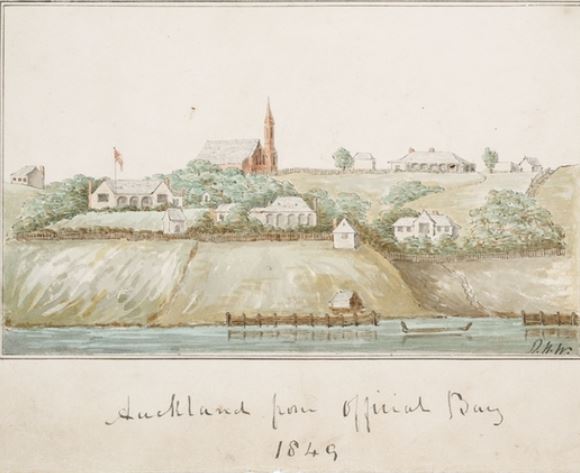 D.H.W.
Auckland from Official Bay
1849